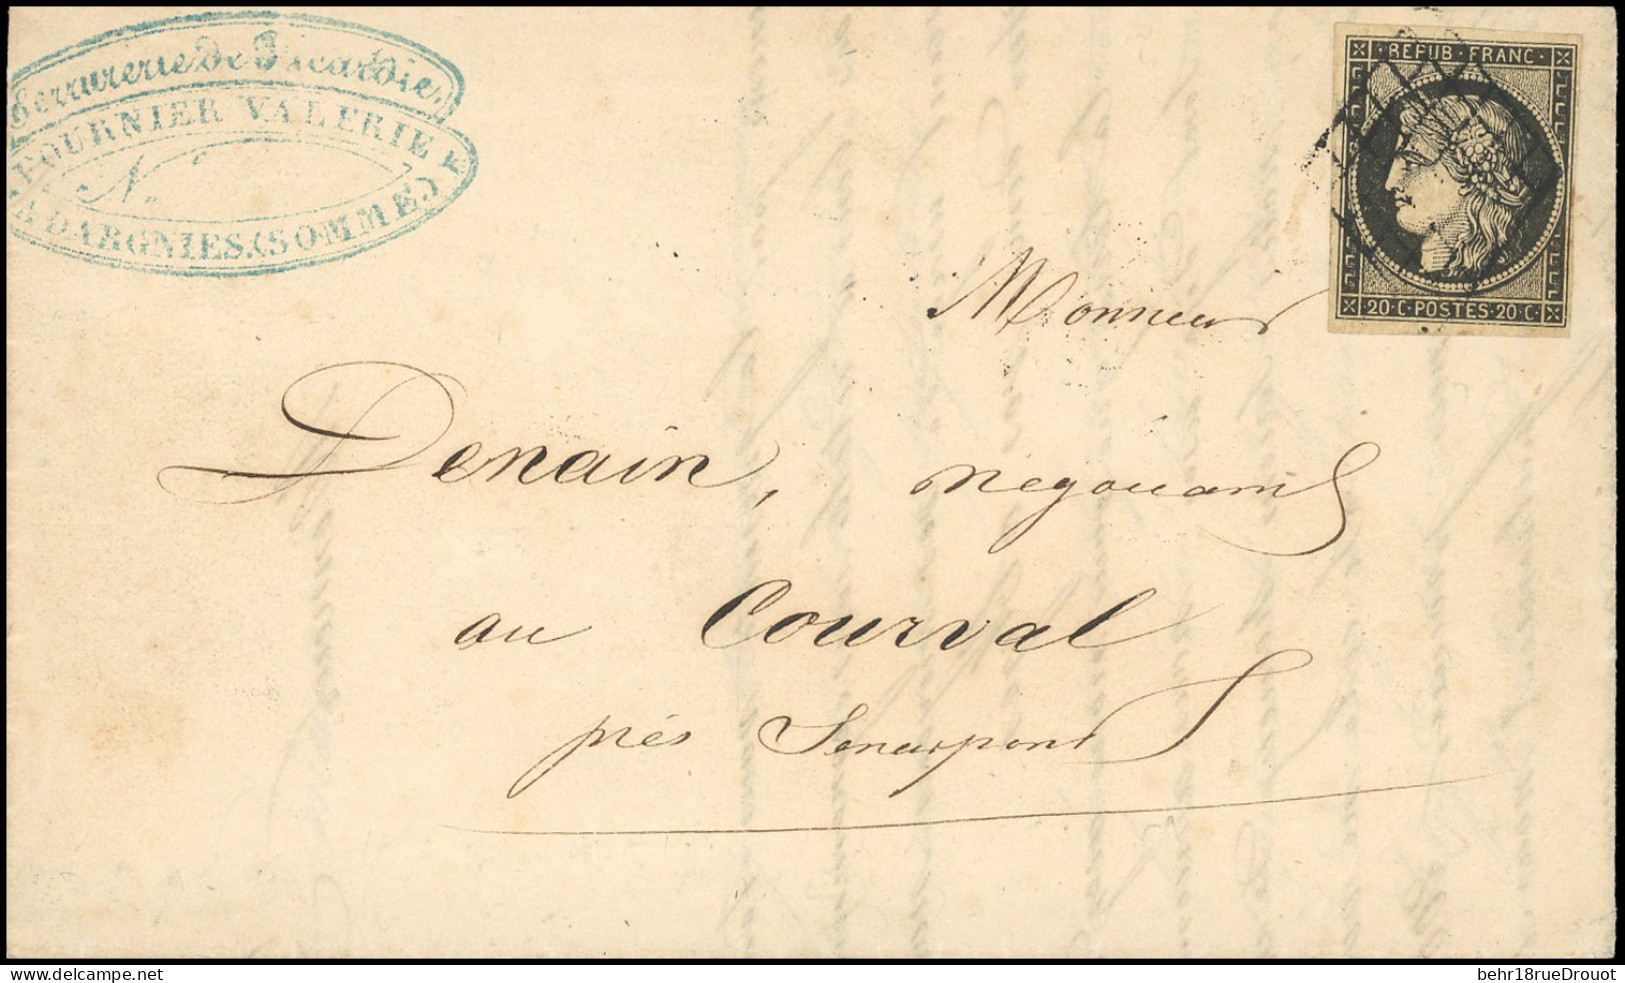 Serrurerie de Picardie
FOURNIER VALERIE F
N.
A DARGNIES. (SOMME.)
REPUB. FRANC.
20.C.POSTES.20.C.
Monsieur
Denain, négociant
au Courval
près Senarpont
delcampe.net
behr18rueDrouot